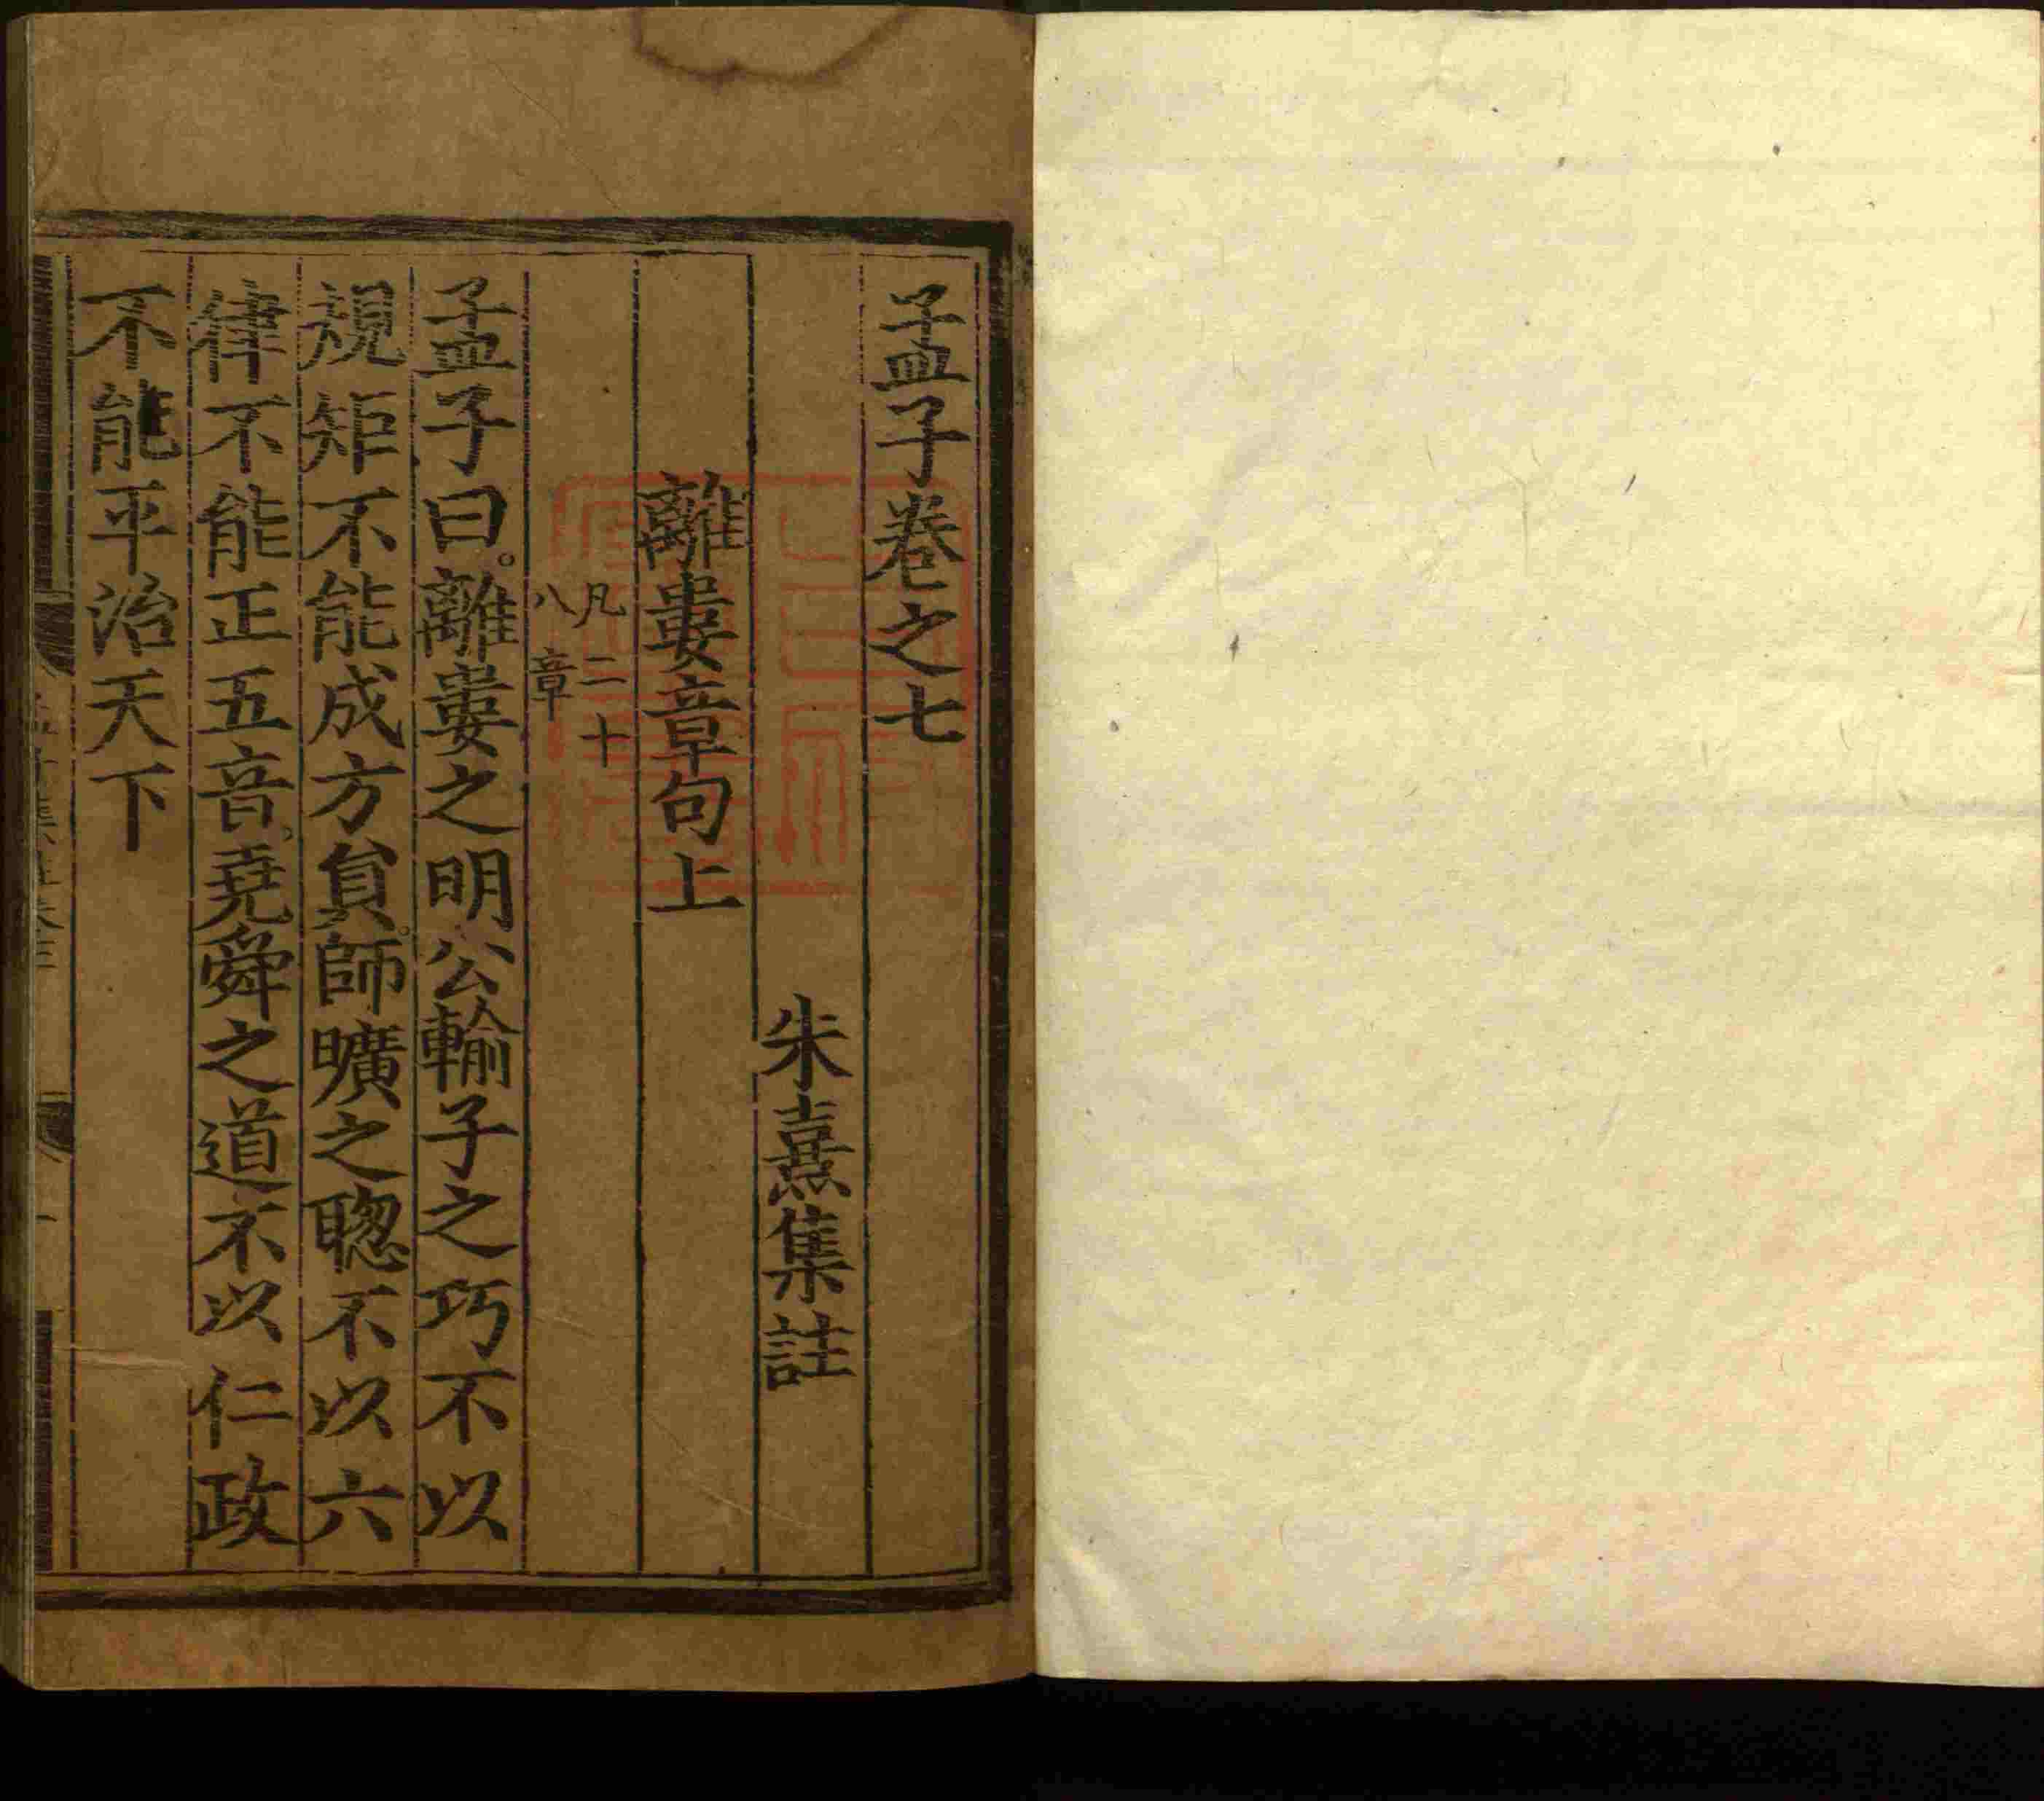 孟子卷之七
朱熹集註
離婁章句上
凡二十
八章
孟子曰。離婁之明公輸子之巧不以
規矩不能成方員。師曠之聦不以六
律不能正五音。堯舜之道不以仁政
不能平治天下